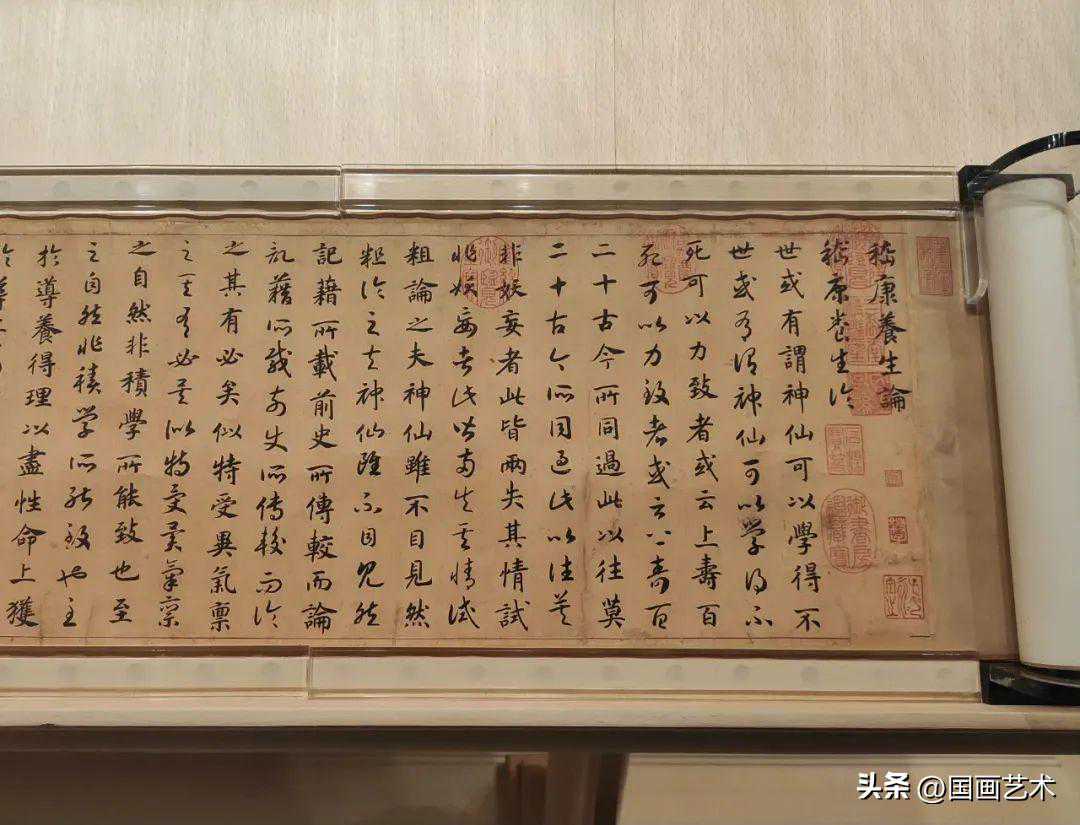 嵇康養生論
嵇康養生論
世或有謂神仙可以學得不
世或有謂神仙可以學得不
死可以力致者或云上壽百
死可以力致者或云上壽百
二十古今所同過此以往莫
二十古今所同過此以往莫
非妖妄者此皆兩失其情試
非妖妄者此皆兩失其情試
粗論之夫神仙雖不目見然
粗論之夫神仙雖不目見然
記籍所載前史所傳較而論
記籍所載前史所傳較而論
之其有必矣似特受異氣禀
之其有必矣似特受異氣禀
之自然非積學所能致也至
之自然非積學所能致也至
於導養得理以盡性命上獲
御書房鑑藏寶
头条 @国画艺术